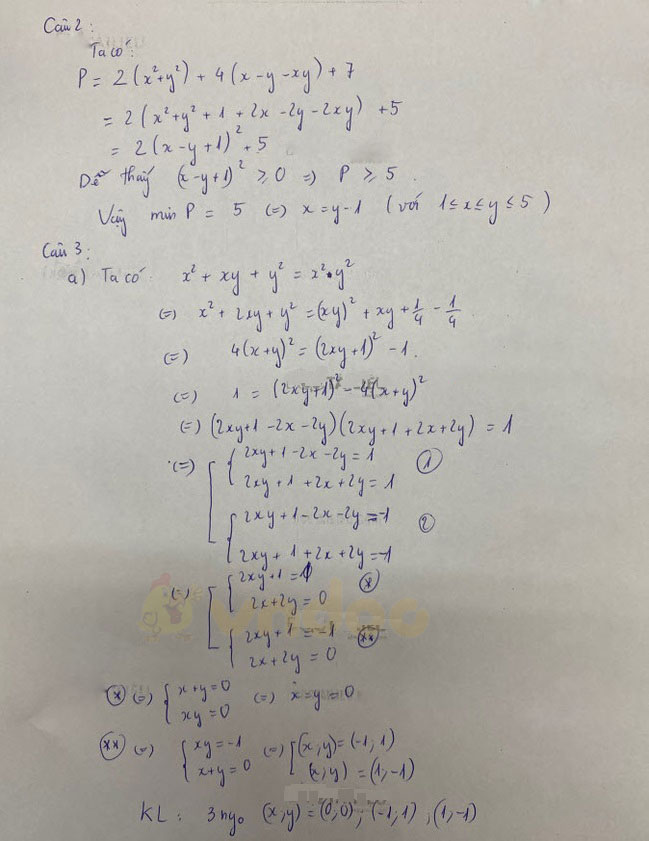 Câu 2:
Ta có:
P = 2(x²+y²) + 4(x-y-xy) + 7
= 2(x²+y²+1+2x-2y-2xy) +5
= 2(x-y+1)² +5
Dễ thấy (x-y+1)² ≥ 0 => P ≥ 5.
Vậy min P = 5 (=) x = y-1 (với 1≤x≤y≤5)
Câu 3:
a) Ta có x² + xy + y² = x²•y²
(=) x² + 2xy + y² = (xy)² + xy + 1/4 - 1/4
(=) 4(x+y)² = (2xy+1)² - 1.
(=) 1 = (2xy+1)² - 4(x+y)²
(=) (2xy+1-2x-2y)(2xy+1+2x+2y) = 1
(=) 2xy+1-2x-2y = 1 ①
2xy+1+2x+2y = 1
2xy+1-2x-2y = -1 ②
2xy+1+2x+2y = -1
(=) 2xy+1 = 1 (*)
2x+2y = 0
2xy+1 = -1 (**)
2x+2y = 0
vndoc
(*) (=) x+y=0 (=) x=y=0
xy=0
(**) (=) xy=-1 (=) (x;y)=(-1;1)
x+y=0 (x;y)=(1;-1)
KL: 3 ngo (x;y)=(0;0); (-1;1); (1;-1)